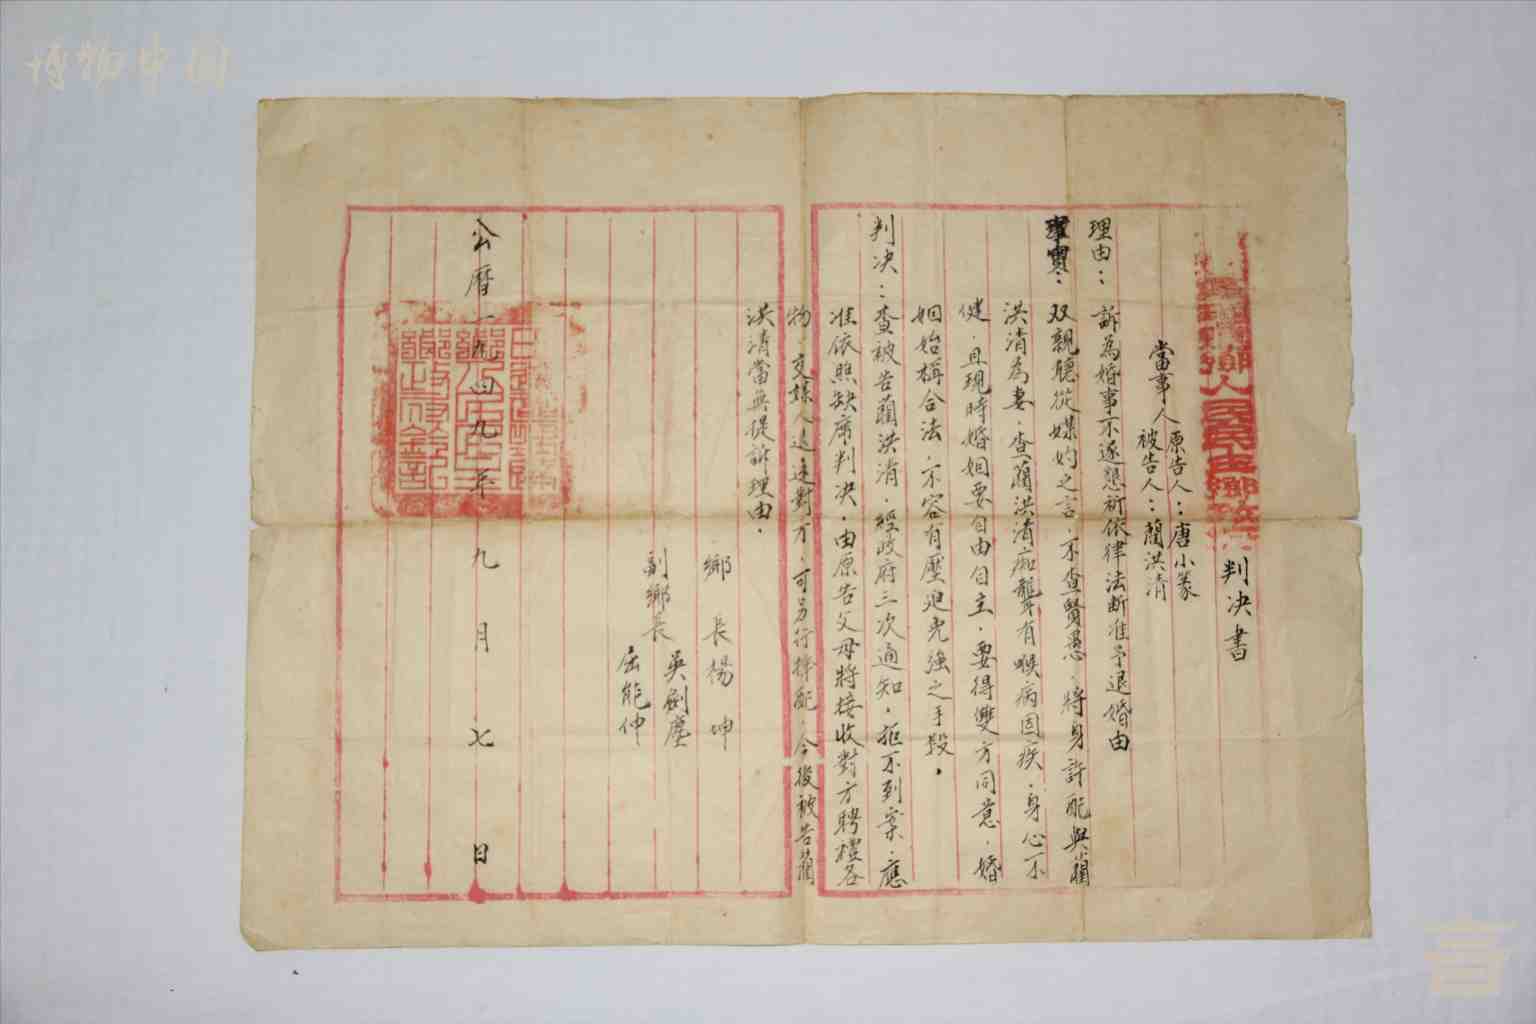 判决書
當事人
原告人：唐小篆
被告人：藺洪清
理由：訴為婚事不遂懇祈依律法斷准予退婚由
事實：双親聽從媒妁之言，不查賢愚，將身許配與藺
洪清為妻，查藺洪清痴聾有喉病固疾，身心不
健，且現時婚姻要自由自主，要得雙方同意，婚
姻始稱合法，不容有壓迫尧強之手段。
判决：查被告藺洪清，經政府三次通知，拒不到案，應
准依照缺席判决，由原告父母將接收對方聘禮各
物，交媒人退還對方，可另行擇配，今後被告藺
洪清當無提訴理由。
鄉長楊坤
副鄉長吳劍塵
屈能仲
公曆一九四九年九月七日
博物中国